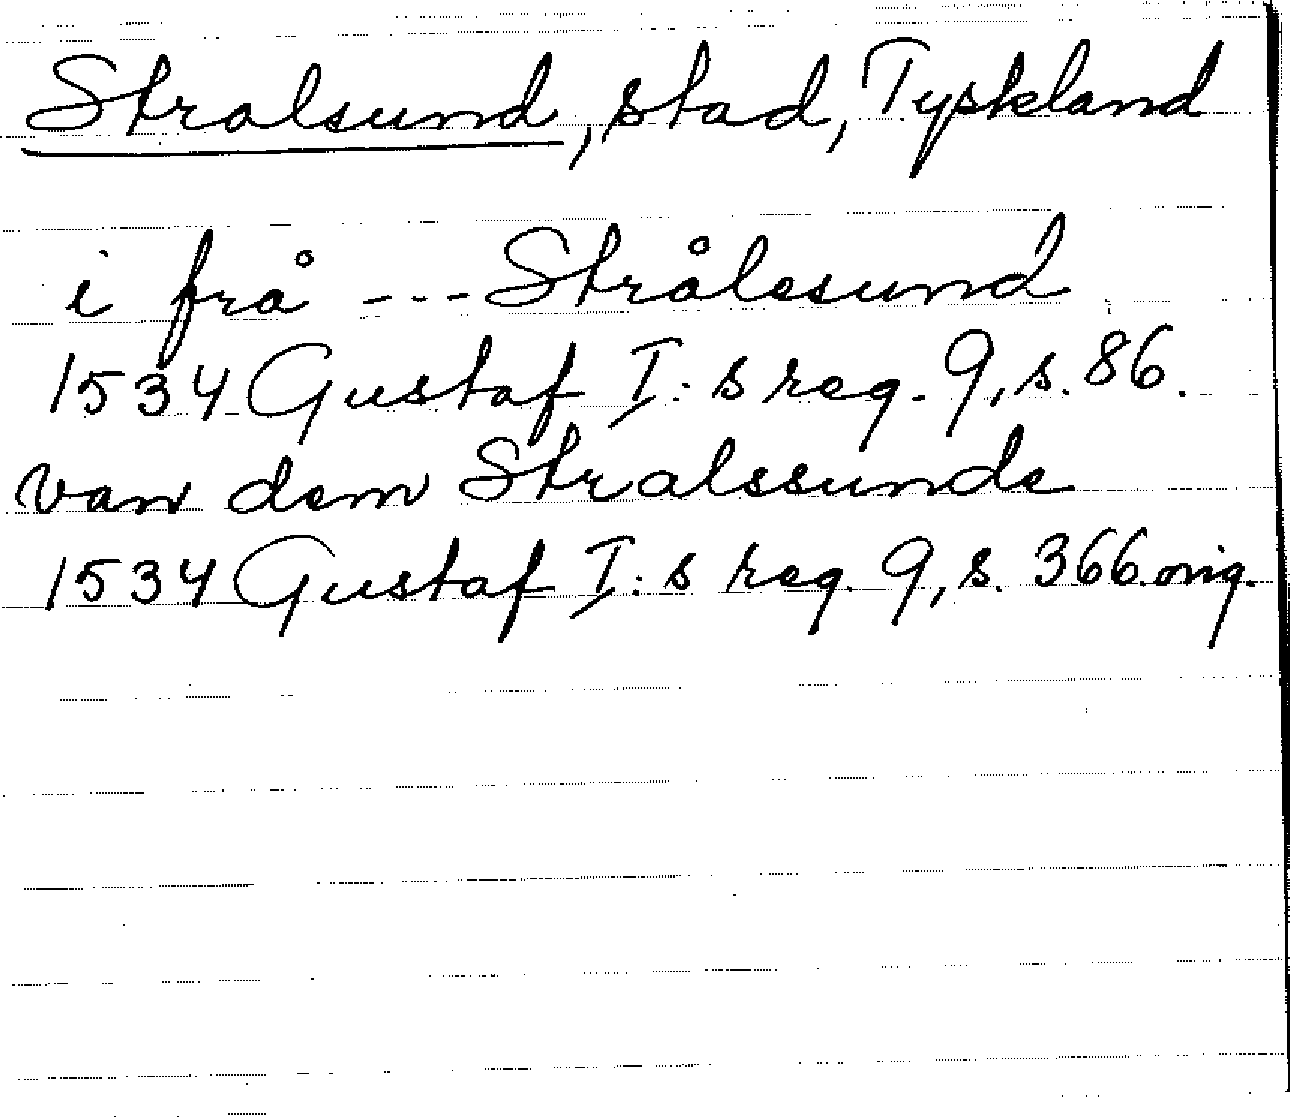 Stralsund, stad, Tyskland
i frå --- Strålesund
1534 Gustaf I:s reg. 9, s. 86.
van dem Stralessunde
1534 Gustaf I:s reg. 9, s. 366 orig.